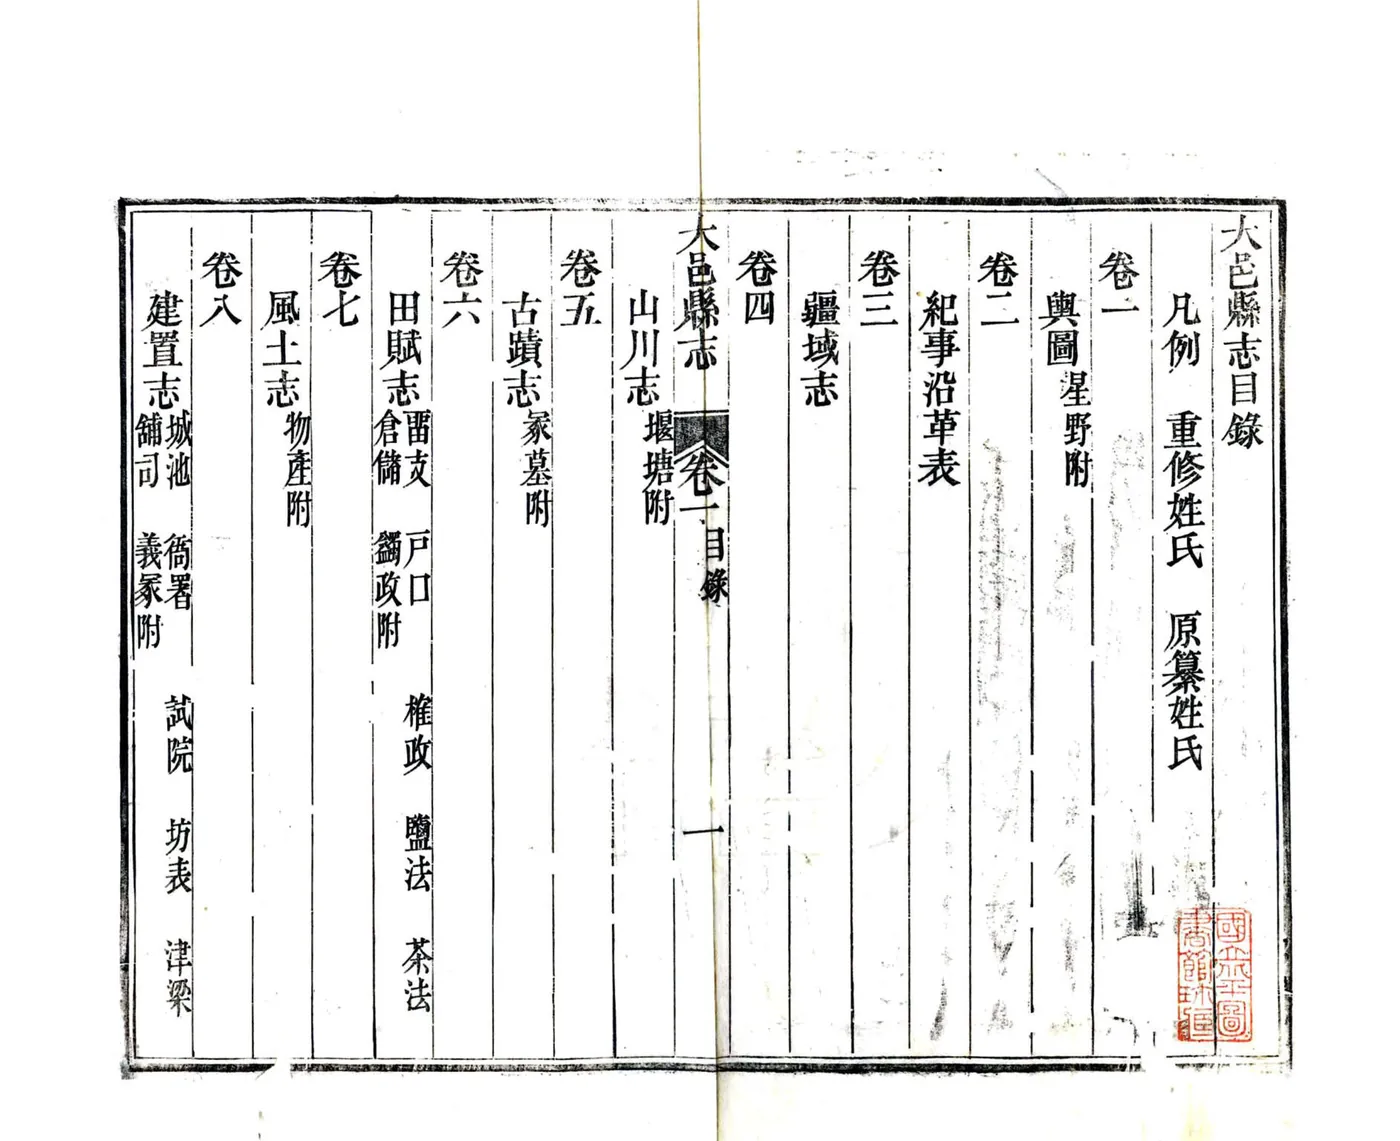 大邑縣志目錄
凡例 重修姓氏 原纂姓氏
卷一
輿圖 星野附
卷二
紀事沿革表
卷三
疆域志
卷四
大邑縣志 卷一目錄 一
山川志 堰塘附
卷五
古蹟志 冢墓附
卷六
田賦志 畱支 戶口 榷政 鹽法 茶法
倉儲 蠲政附
卷七
風土志 物產附
卷八
建置志 城池 衙署 試院 坊表 津梁
舖司 義冢附
國立北平圖
書館珍藏